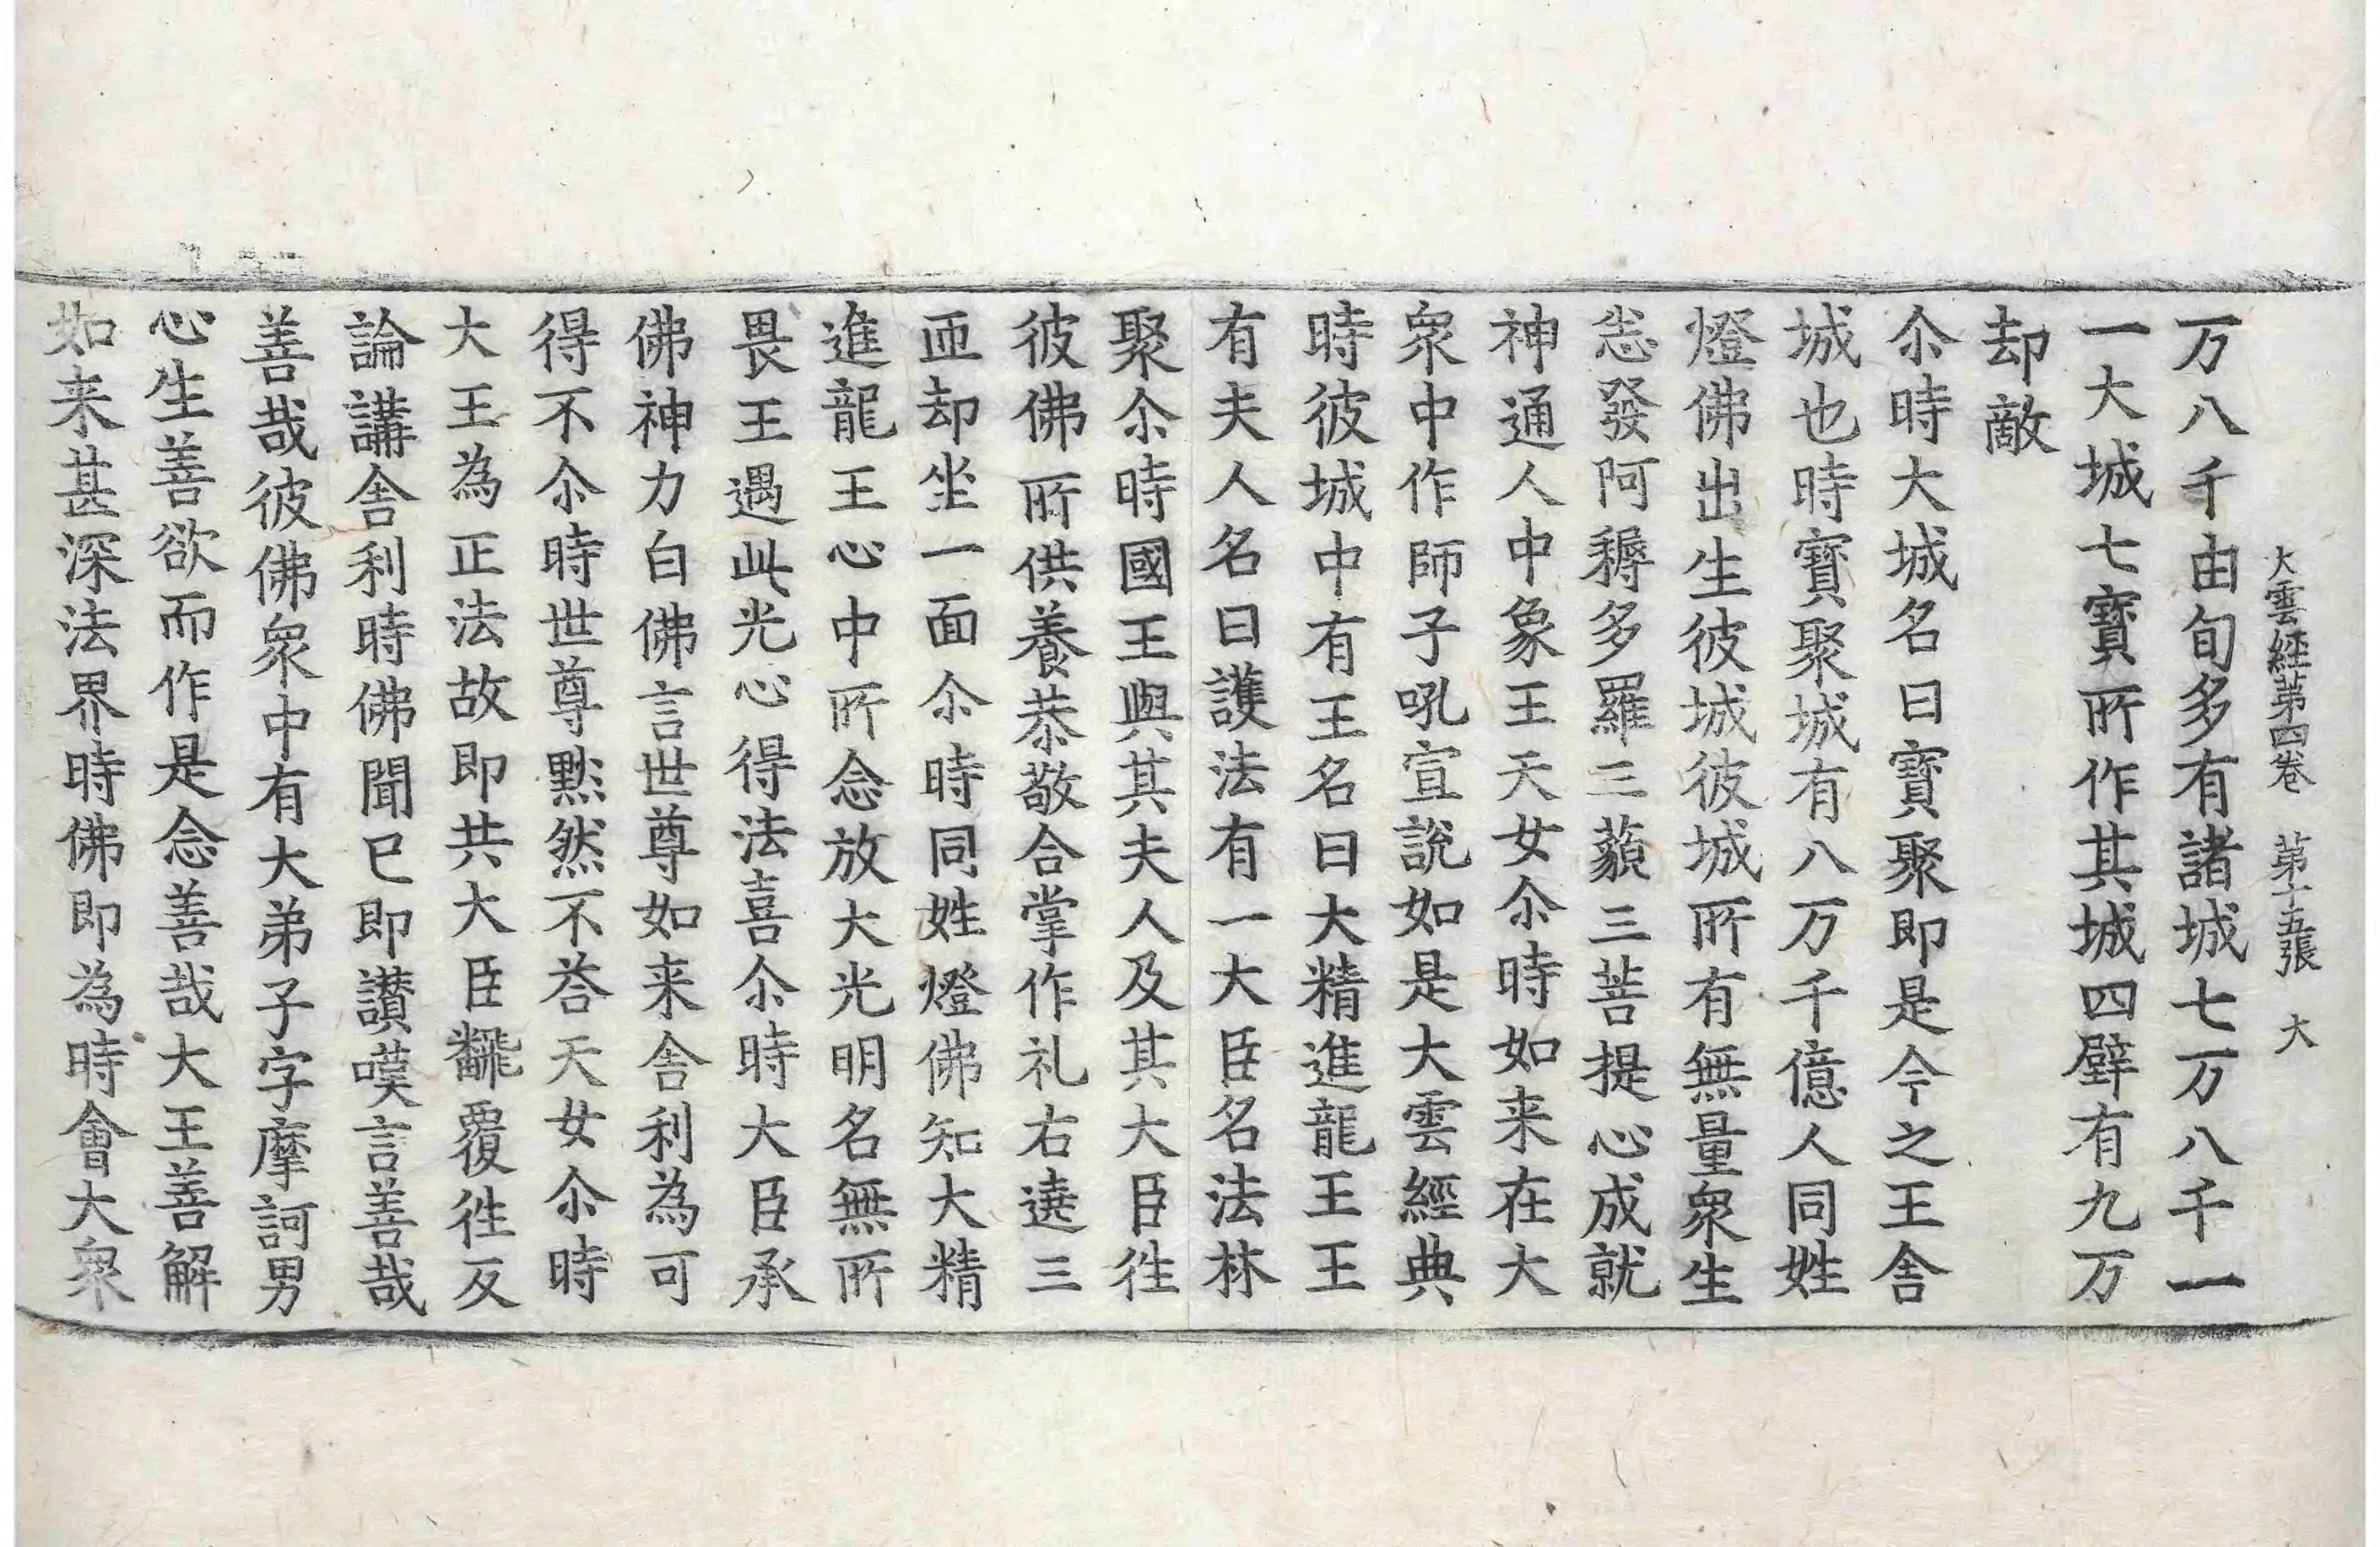 大雲經第四卷 第十五張 大
万八千由旬多有諸城七万八千一
一大城七寶所作其城四壁有九万
却敵
尒時大城名曰寶聚即是今之王舍
城也時寶聚城有八万千億人同姓
燈佛出生彼城彼城所有無量衆生
悉發阿耨多羅三藐三菩提心成就
神通人中象王天女尒時如来在大
衆中作師子吼宣說如是大雲經典
時彼城中有王名曰大精進龍王王
有夫人名曰護法有一大臣名法林
聚尒時國王與其夫人及其大臣徃
彼佛所供養恭敬合掌作礼右遶三
匝却坐一面尒時同姓燈佛知大精
進龍王心中所念放大光明名無所
畏王遇此光心得法喜尒時大臣承
佛神力白佛言世尊如来舍利為可
得不尒時世尊黙然不荅天女尒時
大王為正法故即共大臣飜覆徃反
論講舍利時佛聞已即讃嘆言善哉
善哉彼佛衆中有大弟子字摩訶男
心生善欲而作是念善哉大王善解
如来甚深法界時佛即為時會大衆